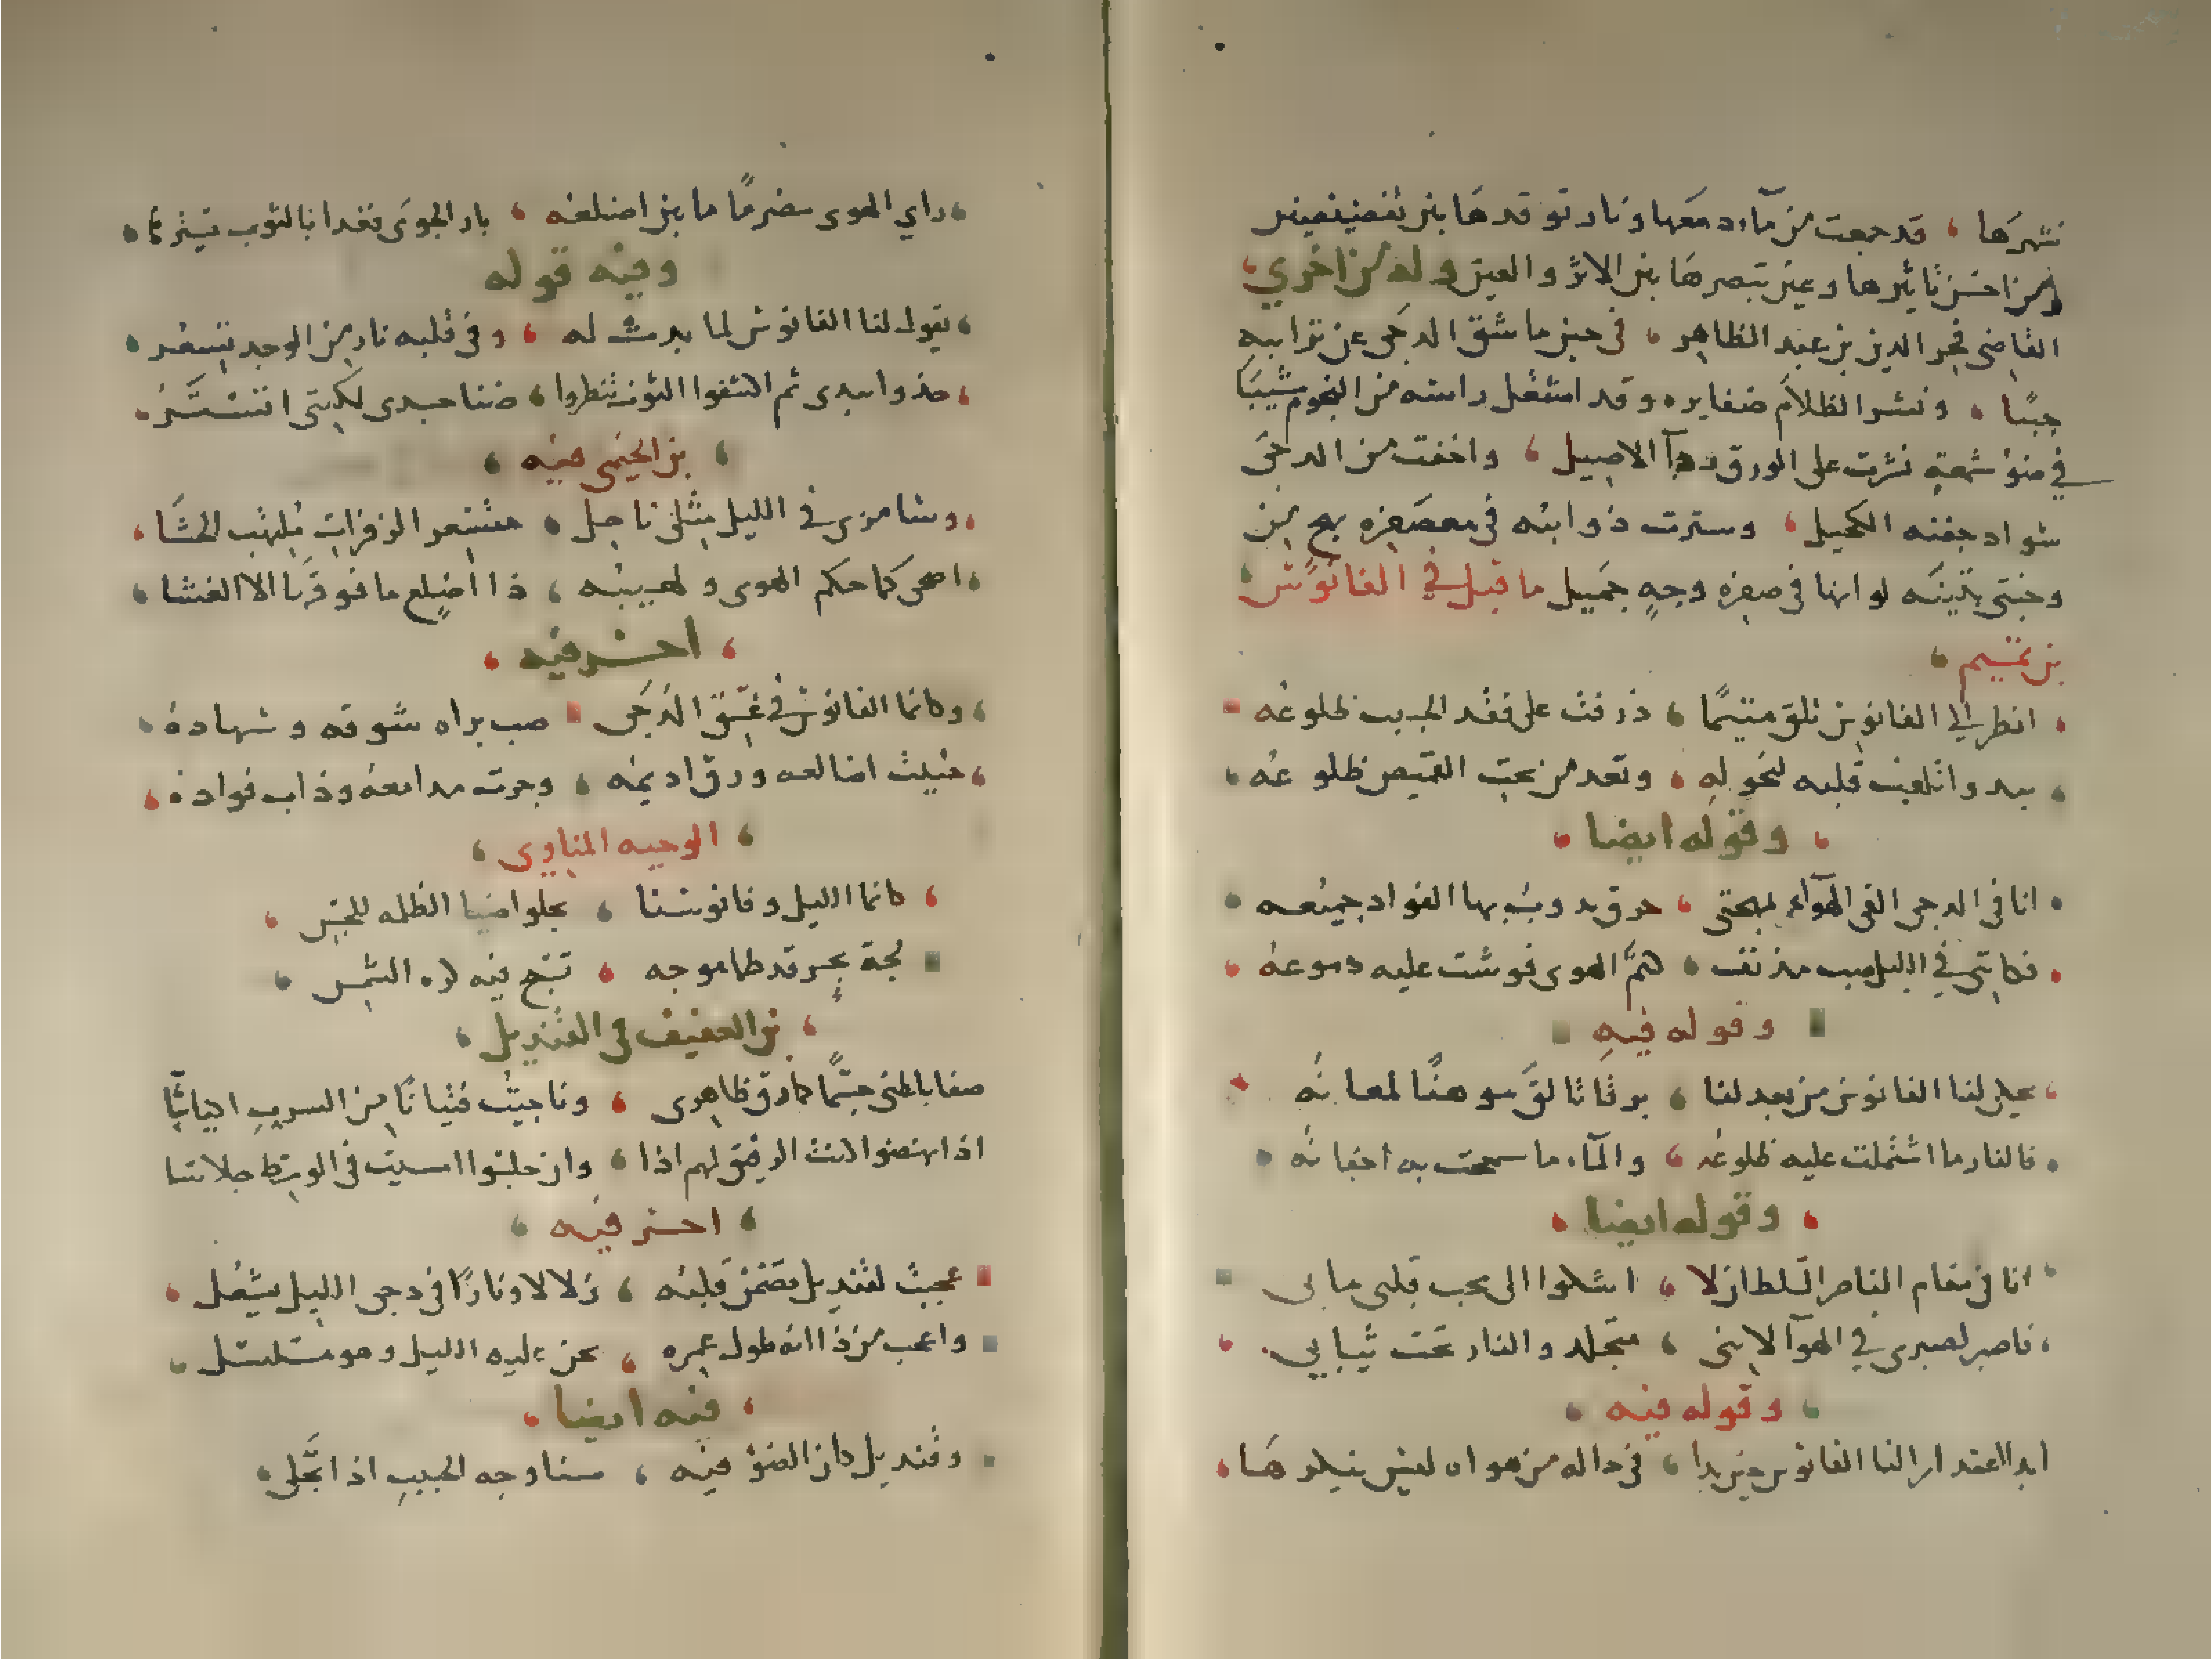 نشرها قد جمعت من ماء دمعها ونار توقدها بين نقيضين
ومن احسن تاثيرها وعين تبصرها بين الاثر والعين وله من اخري
القاضي فخر الدين بن عبد الظاهر في حين ما شق الدجى عن ترابيه
جيبا ونشر الظلام ضفايره وقد اشتعل راسه من النجوم شيبا
في ضوء شمعة نثرت على الورق الاصيل واخفت من الدجى
سواد جفنه الكحيل وسترت ذوابته في معصفره من
وجنتي بثينه لو انها في صفره وجه جميل ما قيل في الفانوس
بن تميم
انظر الى الفانوس تلق متيما ذرفت على فقد الحبيب ظلوعه
يبدو اتلهب قلبه لنحوله وتعد من تحت القميص ظلوعه
وقوله ايضا
انا في الدجى القى الهواء بمهجتي حرق يدوب بها الفواد جميعه
فكانني في الليل صب مدنف هم الهوى فوشت عليه دموعه
وقوله فيه
يحكي لنا الفانوس من بعد لنا برقا تالق موهنا لمعانه
فالنار ما اشتملت عليه ظلوعه والماء ما سمحت به اجفانه
وقوله ايضا
انا في مقام الناصر السلطان لا اشكوا الى محب قلبي ما بي
ناصر لصبري في الهوا لانني متجلد والنار تحت ثيابي
وقوله فيه
ابدا لنا الفانوس حين بدا في حاله من هواه ليس ينكرها
راي الهوى مضرما ما بين اضلعه نار الجوى فغدا بالثوب يسترها
وفيه قوله
يقول لنا الفانوس لما بدت له وفي قلبه نار من الوجد تسعر
خذوا بيدي ثم اكشفوا الثوب تنظروا ضنا جسدي لكنني اتستر
بن الخيمي فيه
وشا مزى في الليل مثلي ناحل مستعر الزفرات ملهب الحشا
اضحى كما حكم الهوى ولهيبه ذا اضلع ما فوقها الا الغشا
اخر فيه
وكانما الفانوس في غسق الدجى صب براه شوقه وسهاده
حنيت اضالعه ورق اديمه وجرت مدامعه وذاب فواده
الوجيه المناوي
كانما الليل وفانوسنا يجلوا ضيا الظلمه للجنس
لجة بحر قد طما موجه تسبح فيه كره الشمس
بن العفيف في القنديل
صفا باطني جسما كما رق ظاهري وناجيت فتيانا من السرب احيانا
اذا نهضوا كنت الرفيق لهم اذا وان جلسوا امسيت في الوسط جلاسا
اخر فيه
عجبت لقنديل تضمن قلبه زلالا ونارا في دجى الليل يشعل
واعجب من ذا انه طول عمره يجن عليه الليل وهو مسلسل
فيه ايضا
وقنديل كان الضوء فيه سنا وجه الحبيب اذا تجلى